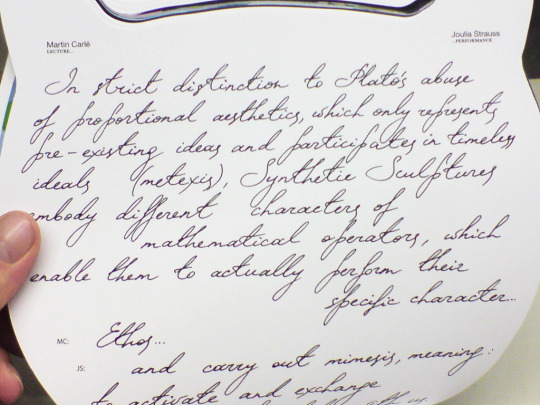 Martin Carlé
LECTURE...
Joulia Strauss
..PERFORMANCE
In strict distinction to Plato's abuse
of proportional aesthetics, which only represents
pre-existing ideas and participates in timeless
ideals (metexis), Synthetic Sculptures
embody different characters of
mathematical operators, which
enable them to actually perform their
specific character...
MC: Ethos...
JS: and carry out mimesis, meaning:
to activate and exchange